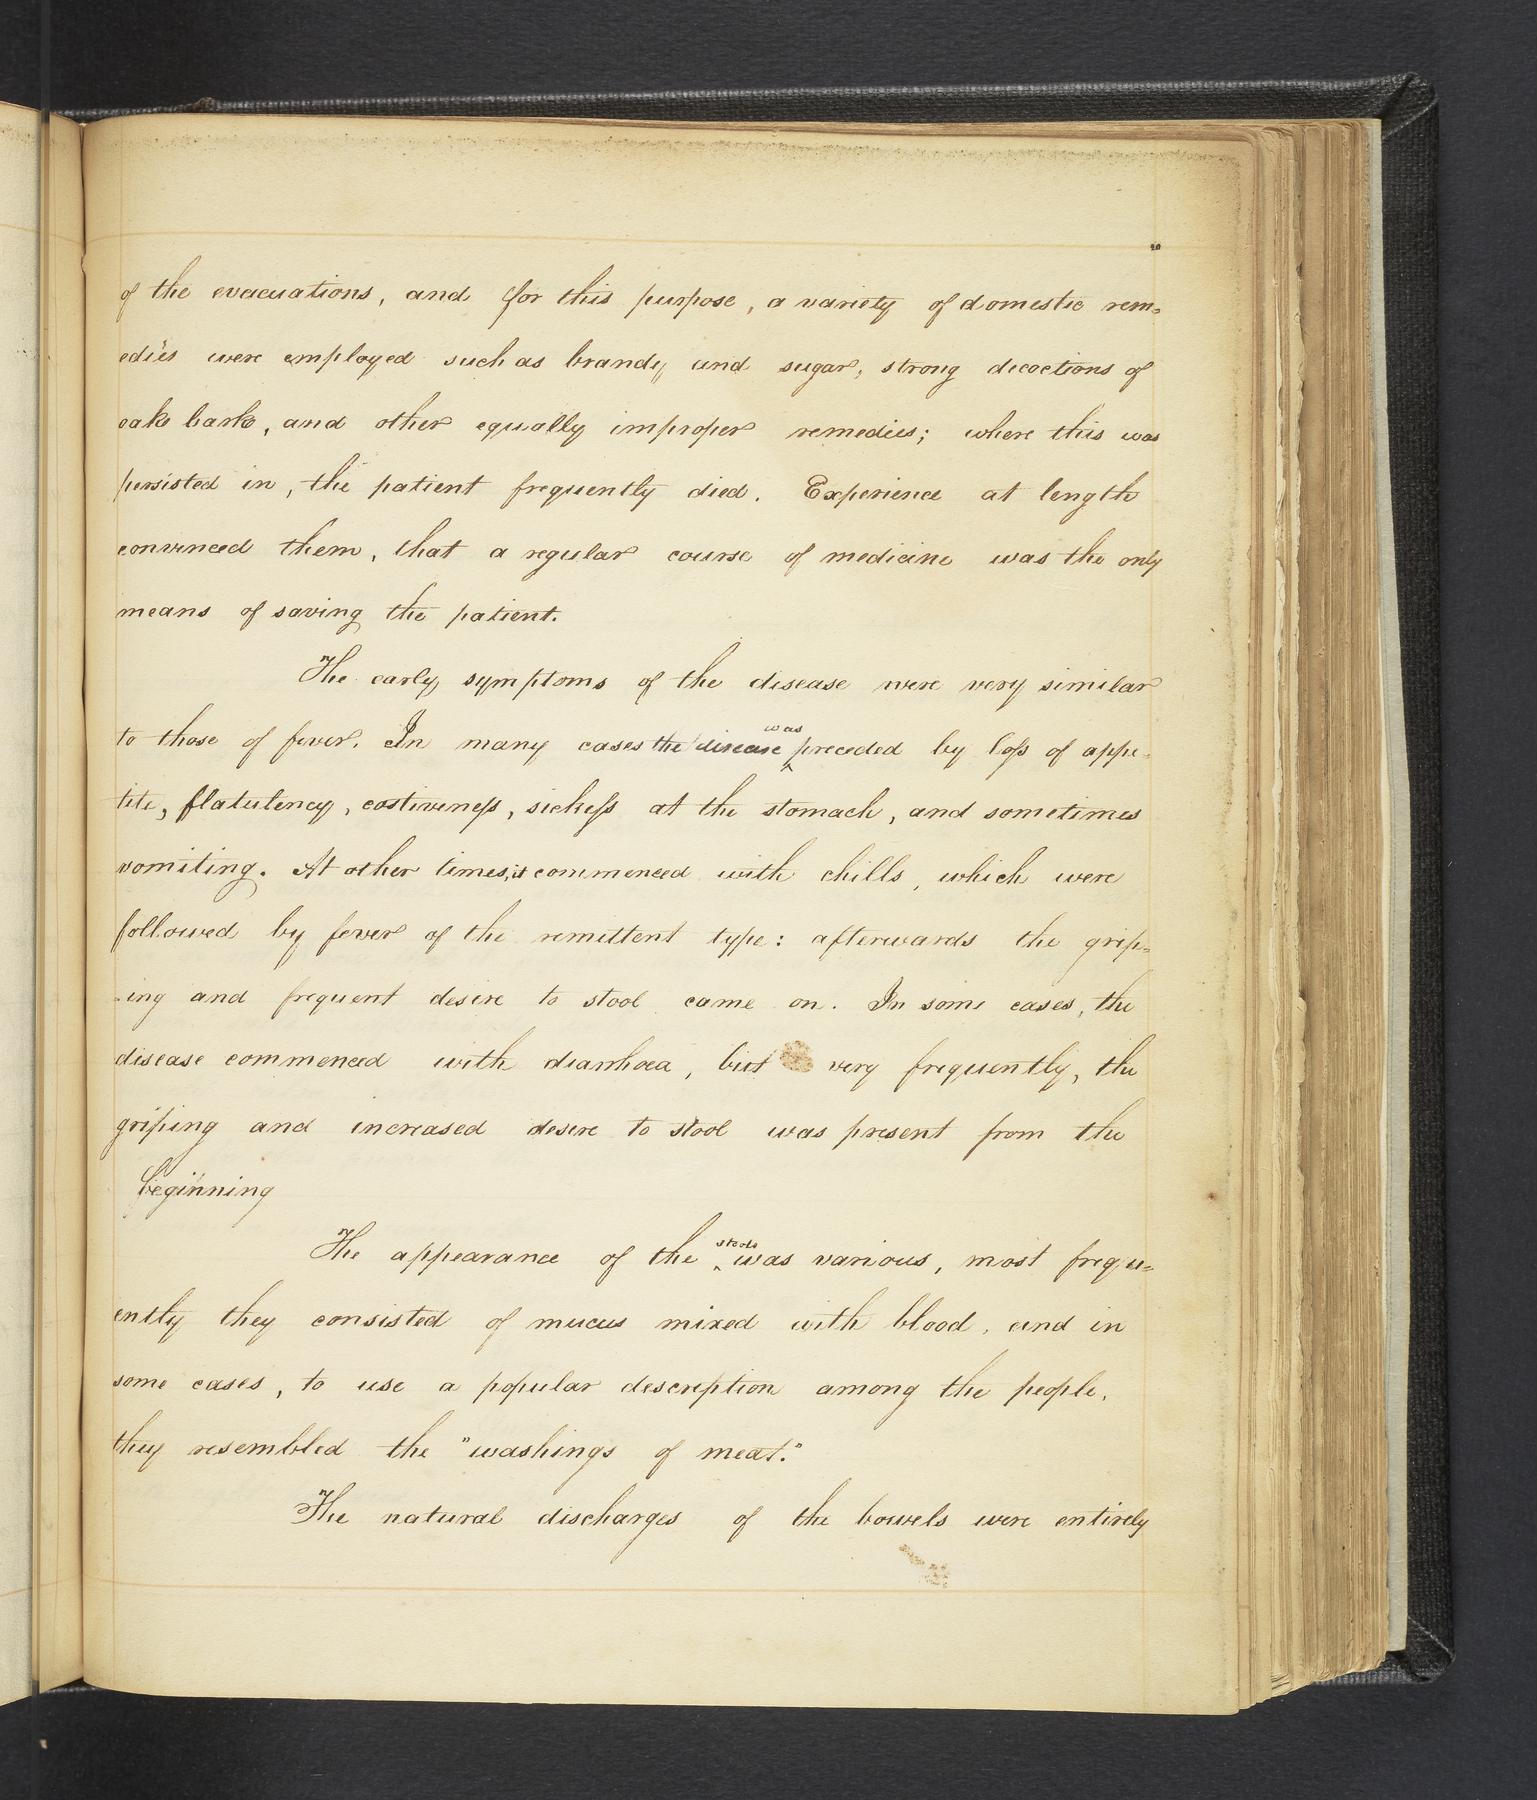 of the evacuations, and for this purpose, a variety of domestic rem=
edies were employed such as brandy and sugar, strong decoctions of
oak bark, and other equally improper remedies; where this was
persisted in, the patient frequently died. Experience at length
convinced them, that a regular course of medicine was the only
means of saving the patient.
The early symptoms of the disease were very similar
to those of fever. In many cases the disease was preceded by loss of appe=
tite, flatulency, costiveness, sickess at the stomach, and sometimes
vomiting. At other times, it commenced with chills, which were
followed by fever of the remittent type: afterwards the grip=
-ing and frequent desire to stool came on. In some cases, the
disease commenced with diarrhoea, but very frequently, the
griping and increased desire to stool was present from the
beginning
The appearance of the stools was various, most frequ=
ently they consisted of mucus mixed with blood, and in
some cases, to use a popular description among the people,
they resembled the "washings of meat."
The natural discharges of the bowels were entirely